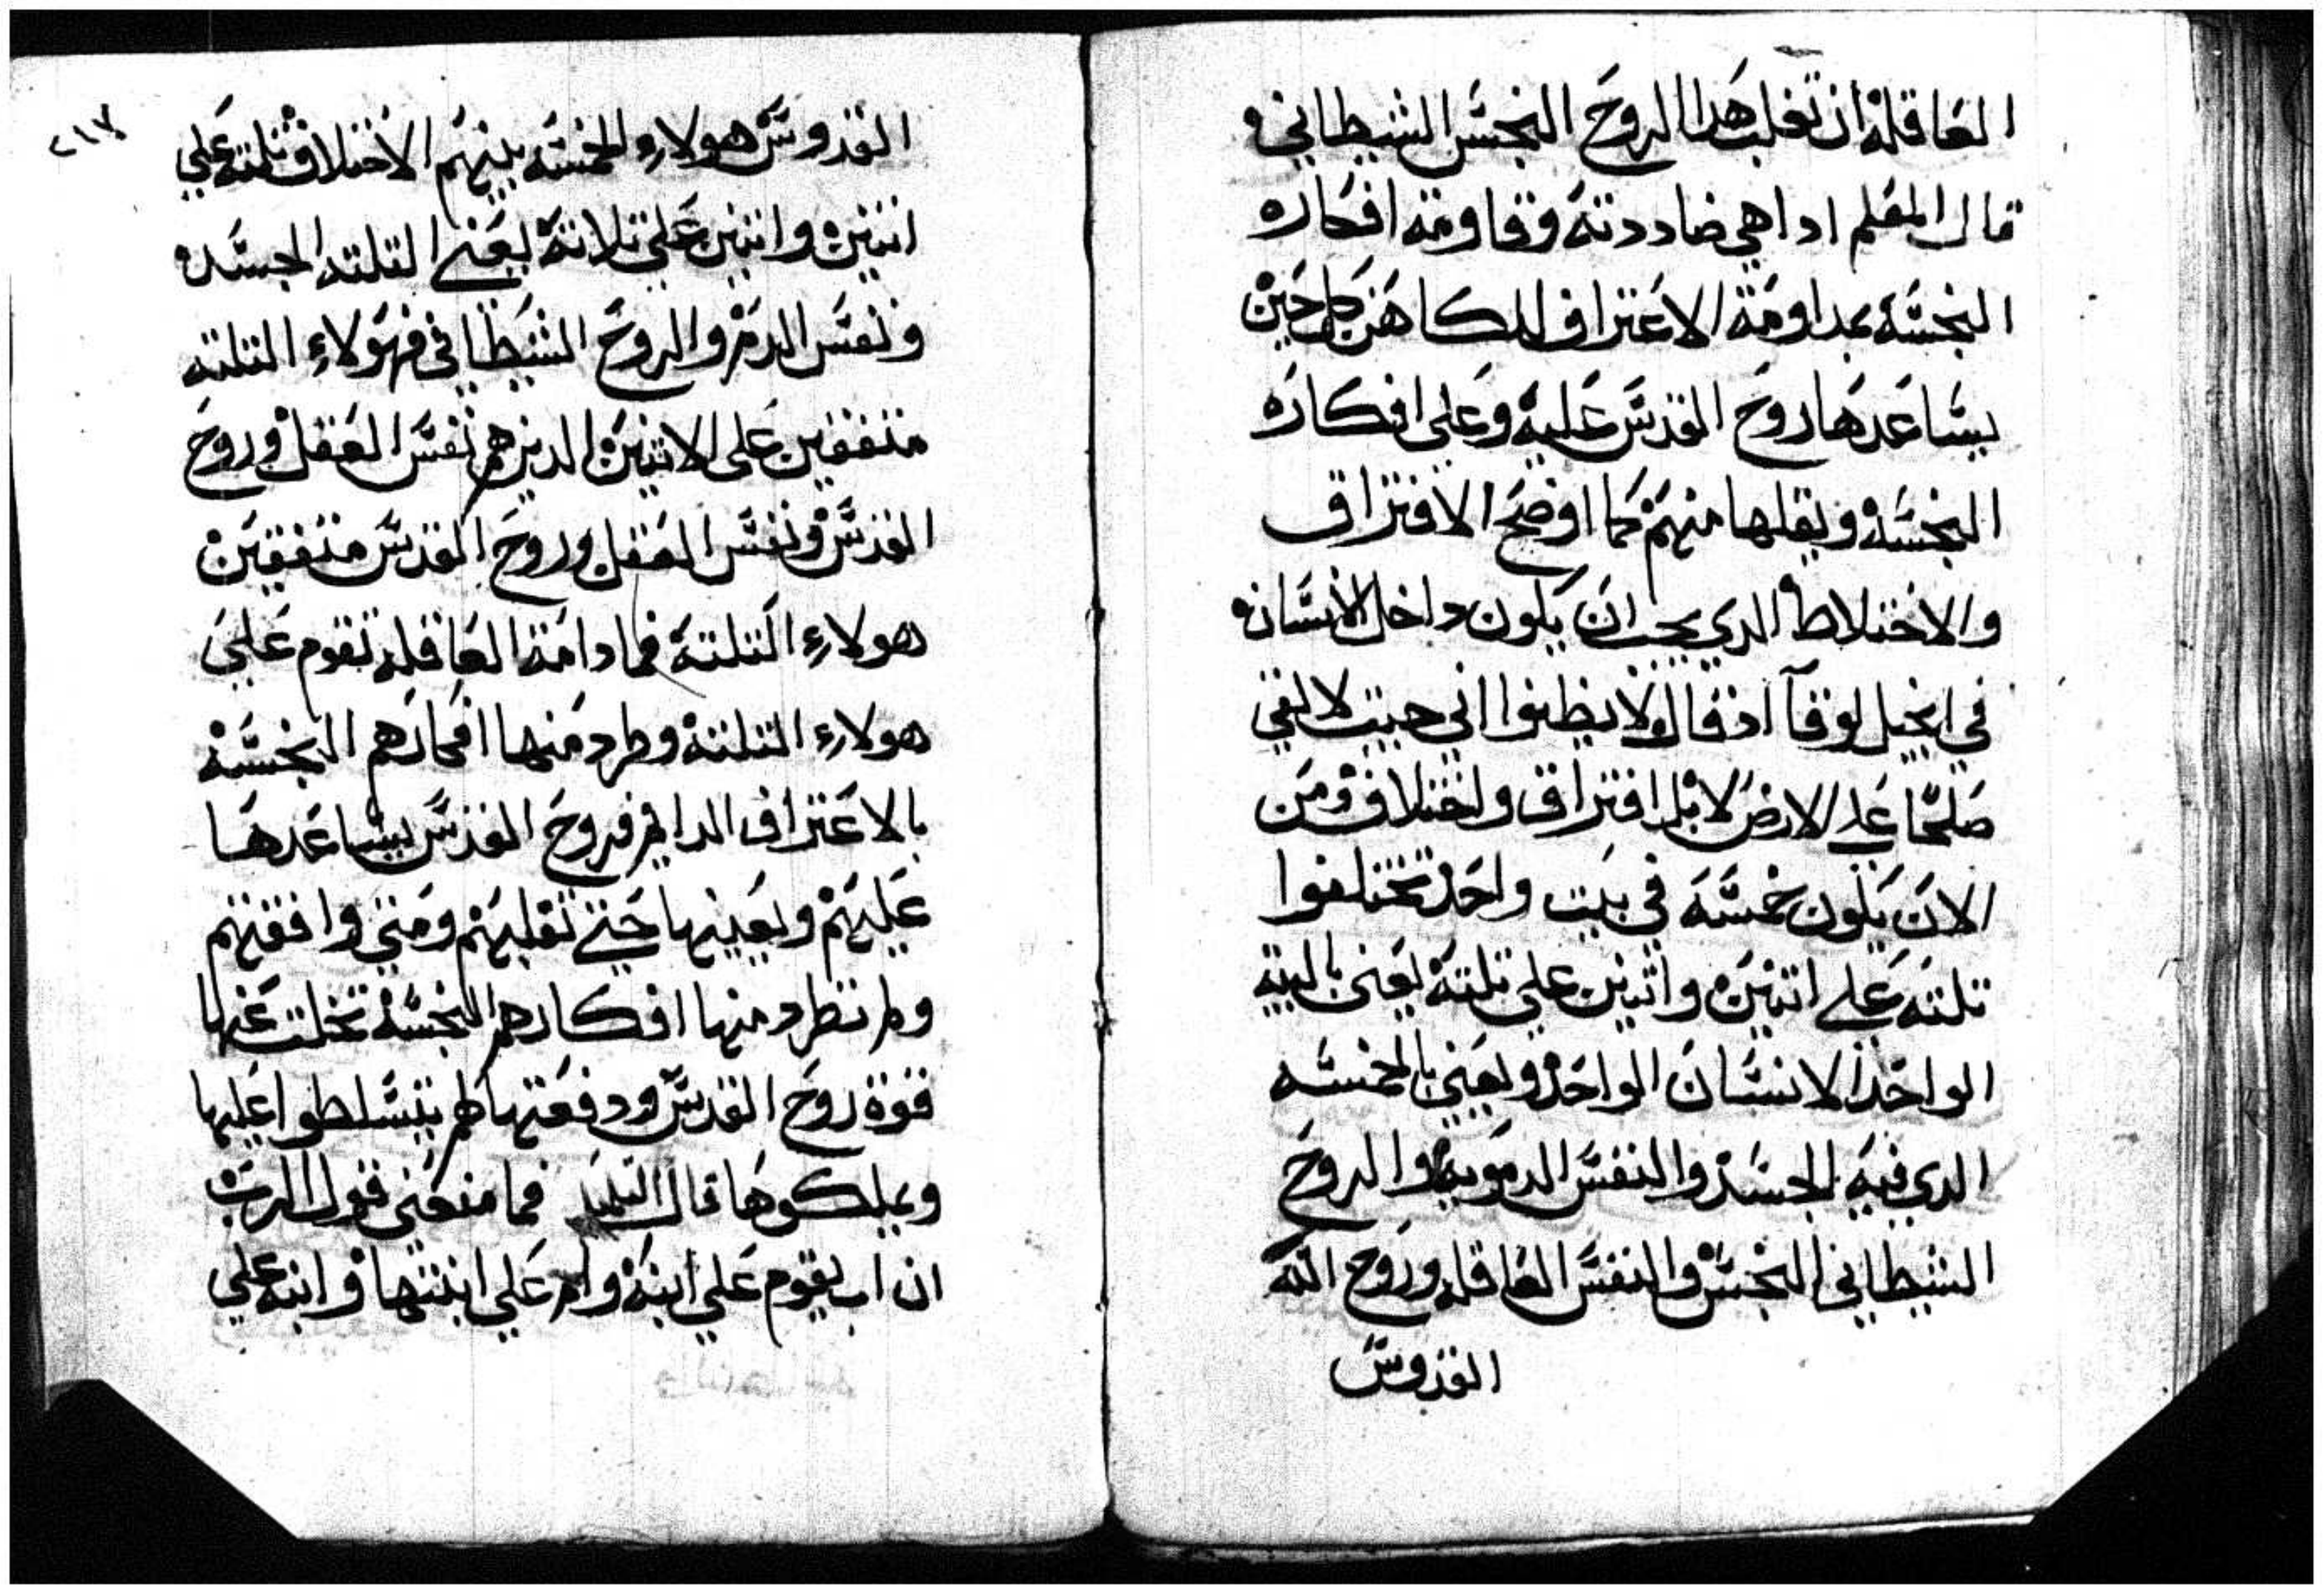 العاقله ان تغلب هدا الروح النجس الشيطاني
قال المعلم ادا هي ضاددته وقاومته افكاره
النجسه بمداومة الاعتراف للكاهن كل حين
يساعدها روح القدس عليه وعلي افكاره
النجسه ويقلها منهم كما اوضح الافتراق
والاختلاط الدي يجب ان يكون داخل الانسان
في انجيل لوقا اد قال لا يظنوا اني جيت لالقي
صلحا علي الارض لا بل افتراق واختلاف ومن
الان يكون خمسه في بيت واحد تختلفوا
تلته علي اتنين واتنين علي تلته يعني بالبيت
الواحد الانسان الواحد ويعني بالخمسه
الدي فيه الجسد والنفس الدمويه والروح
الشيطاني النجس والنفس العاقله وروح الله
القدوس
٢١٧
القدوس هولاء الخمسه بينهم الاختلاف تلته علي
اتنين واتنين علي تلاته يعني التلته الجسد
ونفس الدم والروح الشيطاني فهولاء التلته
متفقين علي الاتنين الدين هم نفس العقل وروح
القدس ونفس العقل وروح القدس متفقين
هولاء التلته فما دامة العاقله تقوم علي
هولاء التلته وطرد منها افكارهم النجسه
بالاعتراف الدايم فروح القدس يساعدها
عليهم ويعينها حتي تغلبهم ومتي وافقتهم
ولم تطرد منها افكارهم النجسه تخلت عنها
قوة روح القدس ودفعتها لهم يتسلطوا عليها
ويملكوها قال التلميد فما معني قول الرب
ان اب يقوم علي ابنه وام علي ابنتها وابنه علي